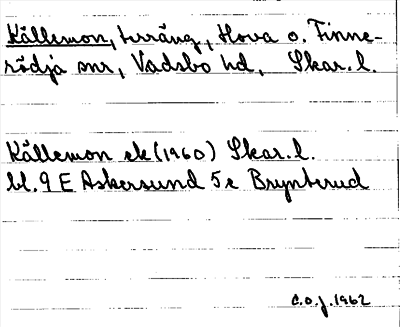 Källemon, terräng, Hova o. Finne-
rödja snr, Vadsbo hd, Skar.l.
Källemon ek (1960) Skar.l.
bl. 9 E Askersund 5e Brynterud
C.O.J. 1962